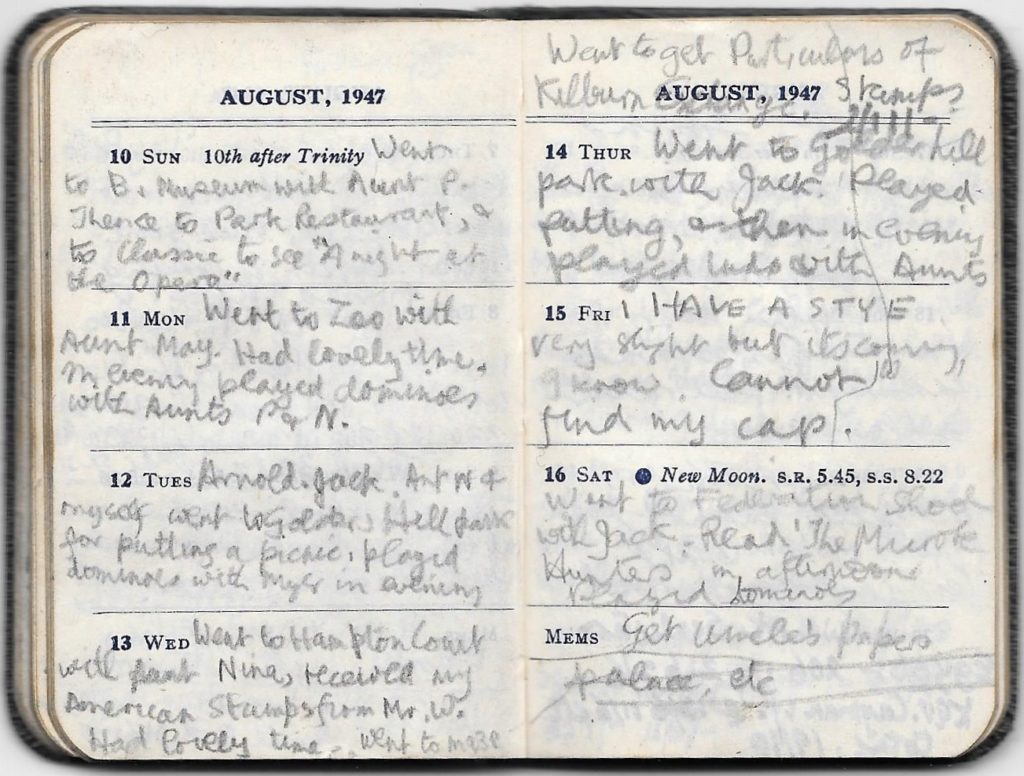 AUGUST, 1947
10 SUN 10th after Trinity Went
to B. Museum with Aunt P.
Thence to Park Restaurant, &
to Classic to see "A night at
the Opera"
11 MON Went to Zoo with
Aunt May. Had lovely time.
In evening played dominoes
with Aunts P & N.
12 TUES Arnold. Jack. Ant N &
myself went to Golders Hill park
for putting a picnic, played
dominoes with in evening
13 WED Went to Hampton Court
with Aunt Nina, received my
American Stamps from Mr. W.
Had lovely time. Went to maze
Went to get Particulars of
Kilburn Stamps
AUGUST, 1947
14 THUR Went to Golder hill
park. with Jack. Played
putting, & then in evening
played ludo with Aunts
15 FRI I HAVE A STYE
very slight but its coming,
I know. Cannot
find my cap.
16 SAT New Moon. S.R. 5.45, S.S. 8.22
Went to Federation
with Jack. Read 'The Microbe
Hunters in afternoon
Played dominoes
MEMS Get Uncle's papers
palace, etc